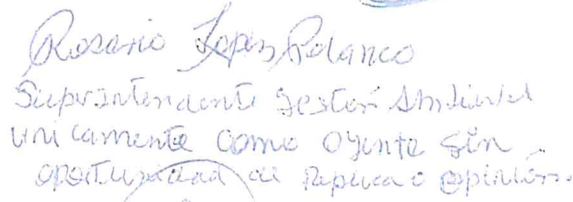 Rosario Lopez Polanco
Superintendente Gestión Ambiental
unicamente como oyente sin
oportunidad de replica o opinión.